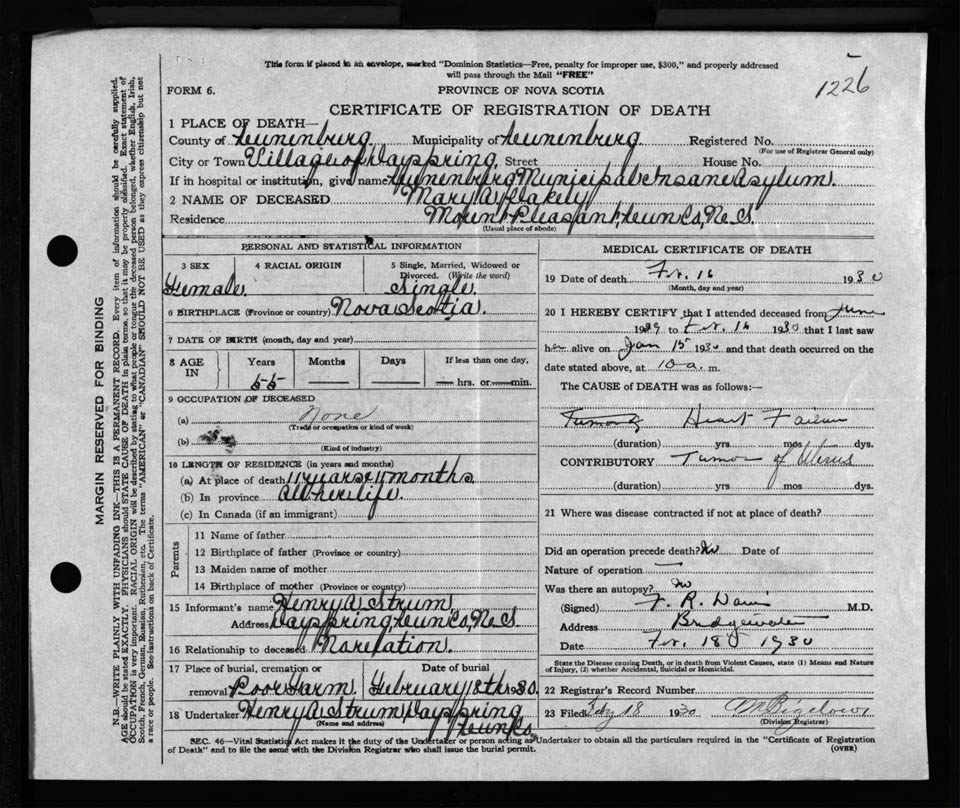 This form if placed in an envelope, marked "Dominion Statistics—Free, penalty for improper use, $300," and properly addressed
will pass through the Mail "FREE"
1226
FORM 6. PROVINCE OF NOVA SCOTIA
CERTIFICATE OF REGISTRATION OF DEATH
1 PLACE OF DEATH—
County of Lunenburg Municipality of Lunenburg Registered No.
(For use of Registrar General only)
City or Town Village of Dayspring Street House No.
If in hospital or institution, give name Lunenburg Municipal Insane Asylum.
2 NAME OF DECEASED Mary A. Flakely
Residence Mount Pleasant, Lun Co, N.S.
(Usual place of abode)
PERSONAL AND STATISTICAL INFORMATION
3 SEX 4 RACIAL ORIGIN 5 Single, Married, Widowed or
Divorced. (Write the word)
Female. Single.
6 BIRTHPLACE (Province or country) Nova Scotia.
7 DATE OF BIRTH (month, day and year)
8 AGE IN Years Months Days If less than one day,
55 — — hrs. or min.
9 OCCUPATION OF DECEASED
(a) None
(Trade or occupation or kind of work)
(b)
(Kind of industry)
10 LENGTH OF RESIDENCE (in years and months)
(a) At place of death 11 years 4 months
(b) In province All her life.
(c) In Canada (if an immigrant)
Parents
11 Name of father
12 Birthplace of father (Province or country)
13 Maiden name of mother
14 Birthplace of mother (Province or country)
15 Informant's name Henry A. Strum.
Address Dayspring, Lun Co, N.S.
16 Relationship to deceased No relation.
17 Place of burial, cremation or Date of burial
removal Poor Farm. February 18th 1930.
18 Undertaker Henry A. Strum, Dayspring
(Name and address) Lun Co
MEDICAL CERTIFICATE OF DEATH
19 Date of death Fb. 16 1930
(Month, day and year)
20 I HEREBY CERTIFY that I attended deceased from June
1929 to Fb. 16 1930 that I last saw
her alive on Jan 15 1930 and that death occurred on the
date stated above, at 10 a. m.
The CAUSE of DEATH was as follows:—
Heart Failure
(duration) yrs mos dys.
CONTRIBUTORY Tumor of Uterus
(duration) yrs mos dys.
21 Where was disease contracted if not at place of death?
Did an operation precede death? No Date of
Nature of operation —
Was there an autopsy? no
(Signed) F. R. Davis M.D.
Address Bridgewater
Date Fb. 18 1930
State the Disease causing Death, or in death from Violent Causes, state (1) Means and Nature
of Injury, (2) whether Accidental, Suicidal or Homicidal.
22 Registrar's Record Number
23 Filed Feby 18 1930
(Division Registrar)
SEC. 46—Vital Statistics Act makes it the duty of the Undertaker or person acting as Undertaker to obtain all the particulars required in the "Certificate of Registration
of Death" and to file the same with the Division Registrar who shall issue the burial permit. (OVER)
MARGIN RESERVED FOR BINDING
N.B.—WRITE PLAINLY WITH UNFADING INK—THIS IS A PERMANENT RECORD. Every item of information should be carefully supplied.
AGE should be stated EXACTLY. PHYSICIANS should STATE CAUSE OF DEATH in plain terms, so that it may be properly classified. Exact statement of
OCCUPATION is very important. RACIAL ORIGIN will be described by stating to what people or tongue the deceased person belonged, whether English, Irish,
Scotch, French, German, Russian, Ruthenian, etc. The terms "AMERICAN" or "CANADIAN" SHOULD NOT BE USED as they express citizenship but not
a race or people. See instructions on back of Certificate.